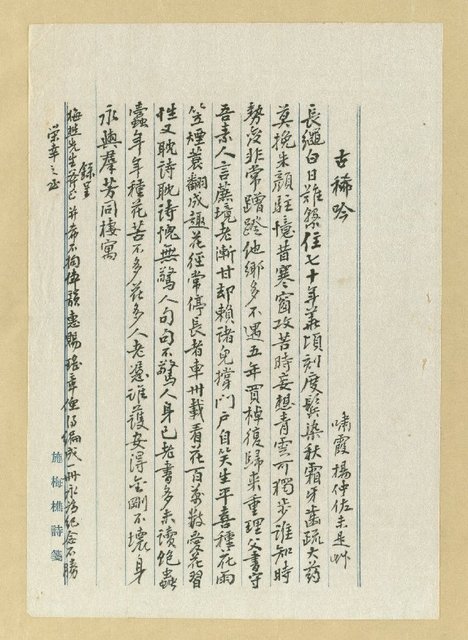 古稀吟
嘯霞楊仲佐未是艸
長繩白日難繫住七十年華頃刻度鬢染秋霜牙齒疏大藥
莫挽朱顏駐憶昔寒窗攻苦時妄想青雲可獨步誰知時
勢後非常蹭蹬他鄉多不遇五年買棹復歸來重理父書守
吾素人言蔗境老漸甘却賴諸兒撐門戶自笑生平喜種花雨
笠煙蓑翻成趣花徑常停長者車卅載看花百萬數愛花習
性又耽詩耽詩愧無驚人句句不驚人身已老書多未讀飽蟲
蠹年年種花苦不多花多人老憑誰護安得金剛不壞身
永與羣芳同棲寓
錄呈
梅樵先生斧正并希不拘體韻惠賜瑤章俾得編成一冊永為紀念不勝
榮幸之至
施梅樵詩箋